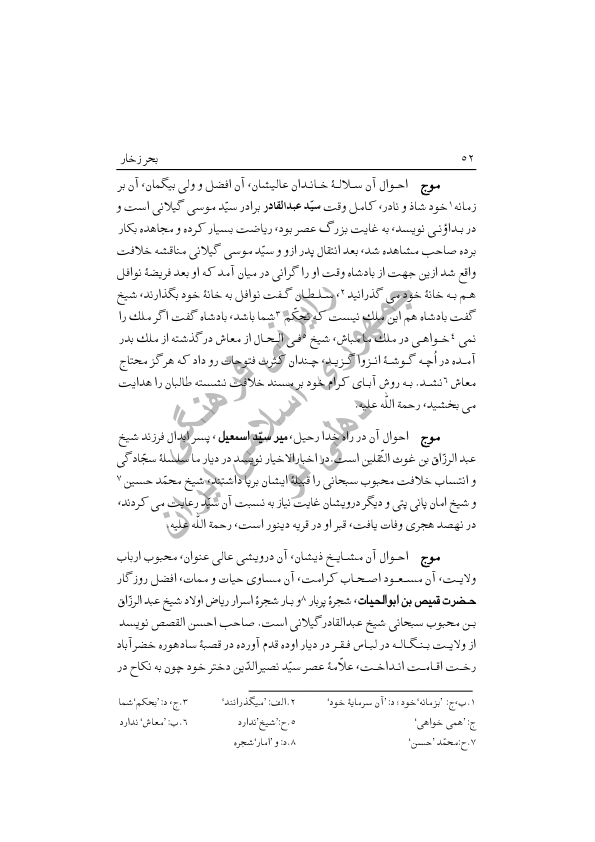 ۵۲
بحر زخار
موج احوال آن سلالۀ خاندان عالیشان، آن افضل و ولی بیگمان، آن بر
زمانه۱خود شاذ و نادر، کامل وقت سیّد عبدالقادر برادر سیّد موسی گیلانی است و
در بداؤنی نویسد، به غایت بزرگ عصر بود، ریاضت بسیار کرده و مجاهده بکار
برده صاحب مشاهده شد، بعد انتقال پدر ازو و سیّد موسی گیلانی مناقشه خلافت
واقع شد ازین جهت از بادشاه وقت او را گرانی در میان آمد که او بعد فریضۀ نوافل
هم به خانۀ خود می گذرانید ۲، سلطان گفت نوافل به خانۀ خود بگذارند، شیخ
گفت بادشاه هم این ملك نیست که تحکّم ۳شما باشد، بادشاه گفت اگر ملك را
نمی ۴خواهی در ملك ما مباش، شیخ ۵فی الحال از معاش درگذشته از ملك بدر
آمده در اُچه گوشۀ انزوا گزید، چندان کثرت فتوحات رو داد که هرگز محتاج
معاش ۶نشد. به روش آبای کرام خود بر مسند خلافت نشسته طالبان را هدایت
می بخشید، رحمة الله علیه.
موج احوال آن در راه خدا رحیل، میر سیّد اسمعیل، پسر ابدال فرزند شیخ
عبد الرزّاق بن غوث الثّقلین است. در اخبارالاخیار نویسد در دیار ما سلسلۀ سجّادگی
و انتساب خلافت محبوب سبحانی را قبیلۀ ایشان برپا داشتند، شیخ محمّد حسین ۷
و شیخ امان پانی پتی و دیگر درویشان غایت نیاز به نسبت آن سیّد رعایت می کردند،
در نهصد هجری وفات یافت، قبر او در قریه دینور است، رحمة الله علیه.
موج احوال آن مشایخ ذیشان، آن درویشی عالی عنوان، محبوب ارباب
ولایت، آن مسعود اصحاب کرامت، آن مساوی حیات و ممات، افضل روزگار
حضرت قمیص بن ابوالحیات، شجرۀ پربار ۸و بار شجرۀ اسرار ریاض اولاد شیخ عبد الرزّاق
بن محبوب سبحانی شیخ عبدالقادر گیلانی است. صاحب احسن القصص نویسد
از ولایت بنگاله در لباس فقر در دیار اوده قدم آورده در قصبۀ سادهوره خضرآباد
رخت اقامت انداخت، علّامۀ عصر سیّد نصیرالدّین دختر خود چون به نکاح در
۱.ب،ج: 'بزمانه'خود ؛ د: 'آن سرمایۀ خود' ۲.الف: 'میگذرانند' ۳.ج، د: 'بحکم'شما
ج: 'همی خواهی' ۵.ح: 'شیخ'ندارد ۶.ب: 'معاش' ندارد
۷.ح:محمّد 'حسن' ۸.د: و 'امار'شجره
رایزنی فرهنگی
جمهوری اسلامی ایران
دهلی نو